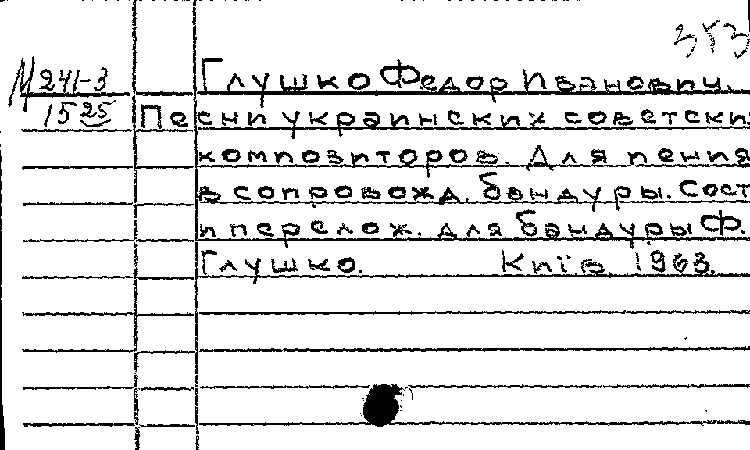 353
М 241-3 Глушко, Федор Иванович.
1525 Песни украинских советски
композиторов. Для пения
в сопровожд. бандуры. Сост
и перелож. для бандуры Ф.
Глушко. Київ, 1963.